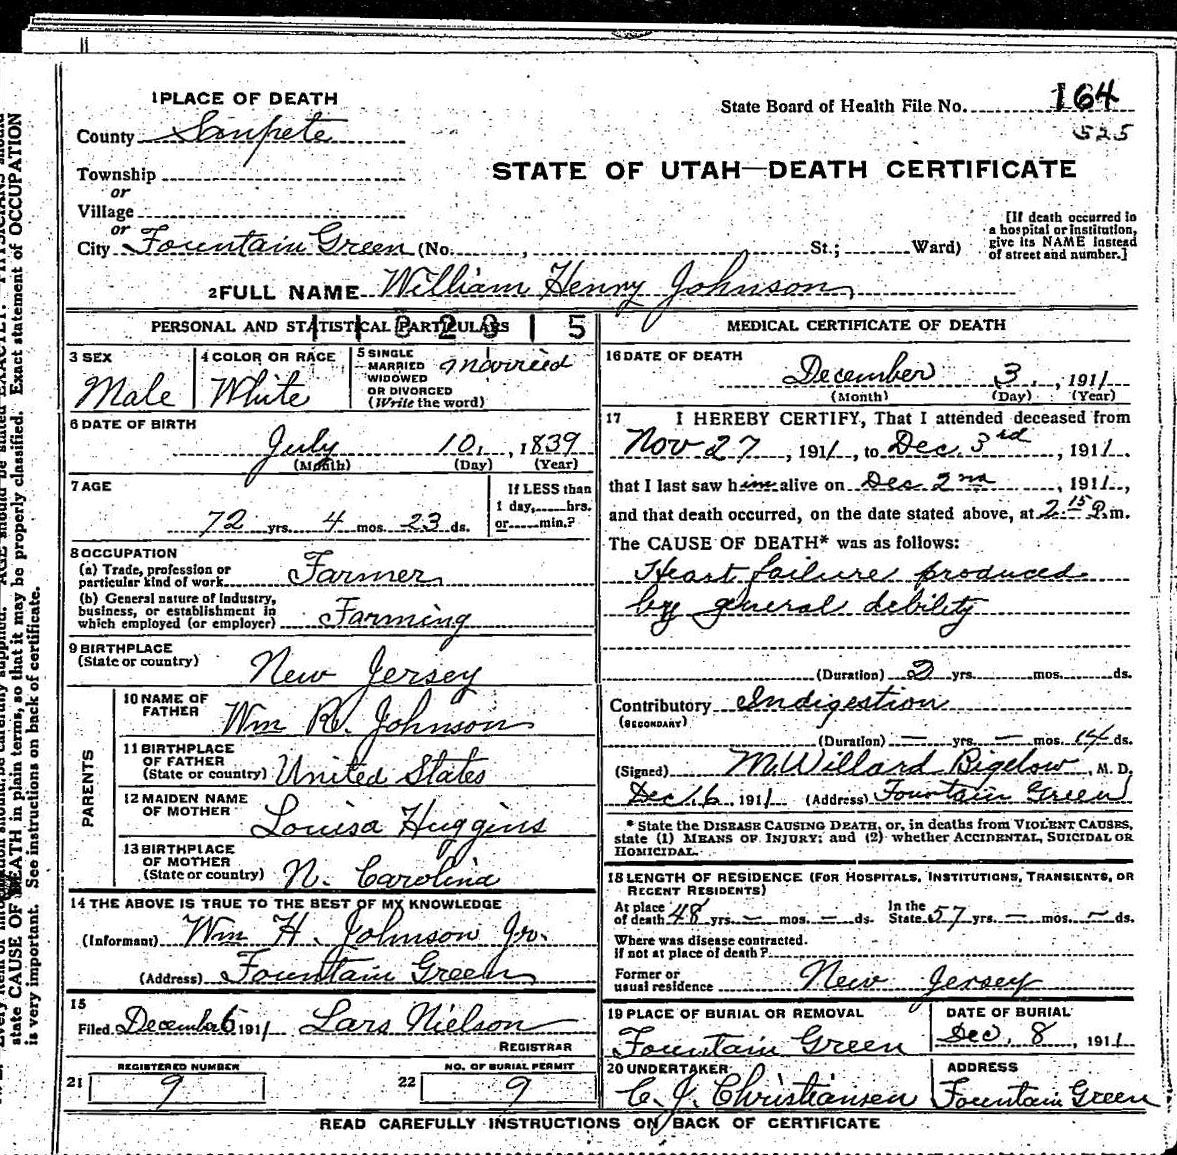 1 PLACE OF DEATH
County Sanpete
Township
or
Village
or
City Fountain Green (No. , St.; Ward)
State Board of Health File No. 164
525
STATE OF UTAH—DEATH CERTIFICATE
[If death occurred in
a hospital or institution,
give its NAME instead
of street and number.]
2 FULL NAME William Henry Johnson
PERSONAL AND STATISTICAL PARTICULARS
3 SEX
Male
4 COLOR OR RACE
White
5 SINGLE
MARRIED
WIDOWED
OR DIVORCED
(Write the word)
Married
6 DATE OF BIRTH
July 10, , 1839
(Month) (Day) (Year)
7 AGE
72 yrs. 4 mos. 23 ds.
If LESS than
1 day, hrs.
or min.?
8 OCCUPATION
(a) Trade, profession or
particular kind of work Farmer
(b) General nature of industry,
business, or establishment in
which employed (or employer) Farming
9 BIRTHPLACE
(State or country)
New Jersey
PARENTS
10 NAME OF
FATHER Wm R. Johnson
11 BIRTHPLACE
OF FATHER
(State or country) United States
12 MAIDEN NAME
OF MOTHER
Louisa Huggins
13 BIRTHPLACE
OF MOTHER
(State or country) N. Carolina
14 THE ABOVE IS TRUE TO THE BEST OF MY KNOWLEDGE
(Informant) Wm H. Johnson Jr.
(Address) Fountain Green
15
Filed December 6 1911 Lars Nielson
REGISTRAR
REGISTERED NUMBER
21 9
NO. OF BURIAL PERMIT
22 9
MEDICAL CERTIFICATE OF DEATH
16 DATE OF DEATH
December 3. , 1911
(Month) (Day) (Year)
17 I HEREBY CERTIFY, That I attended deceased from
Nov 27 , 1911, to Dec. 3rd , 1911.
that I last saw him alive on Dec 2nd , 1911,
and that death occurred, on the date stated above, at 2.15 P.m.
The CAUSE OF DEATH* was as follows:
Heart failure produced
by general debility
(Duration) 2 yrs. mos. ds.
Contributory Indigestion
(SECONDARY)
(Duration) — yrs. — mos. 14 ds.
(Signed) M. Willard Bigelow, M. D.
Dec. 6, 1911 (Address) Fountain Green
* State the DISEASE CAUSING DEATH, or, in deaths from VIOLENT CAUSES,
state (1) MEANS OF INJURY; and (2) whether ACCIDENTAL, SUICIDAL OR
HOMICIDAL.
18 LENGTH OF RESIDENCE (FOR HOSPITALS, INSTITUTIONS, TRANSIENTS, OR
RECENT RESIDENTS)
At place
of death 48 yrs. — mos. — ds.
In the
State 57 yrs. — mos. — ds.
Where was disease contracted.
If not at place of death?
Former or
usual residence New Jersey
19 PLACE OF BURIAL OR REMOVAL
Fountain Green
DATE OF BURIAL
Dec. 8 , 1911
20 UNDERTAKER
C. J. Christiansen
ADDRESS
Fountain Green
READ CAREFULLY INSTRUCTIONS ON BACK OF CERTIFICATE
state CAUSE OF DEATH in plain terms, so that it may be properly classified. Exact statement of OCCUPATION
is very important. See instructions on back of certificate.